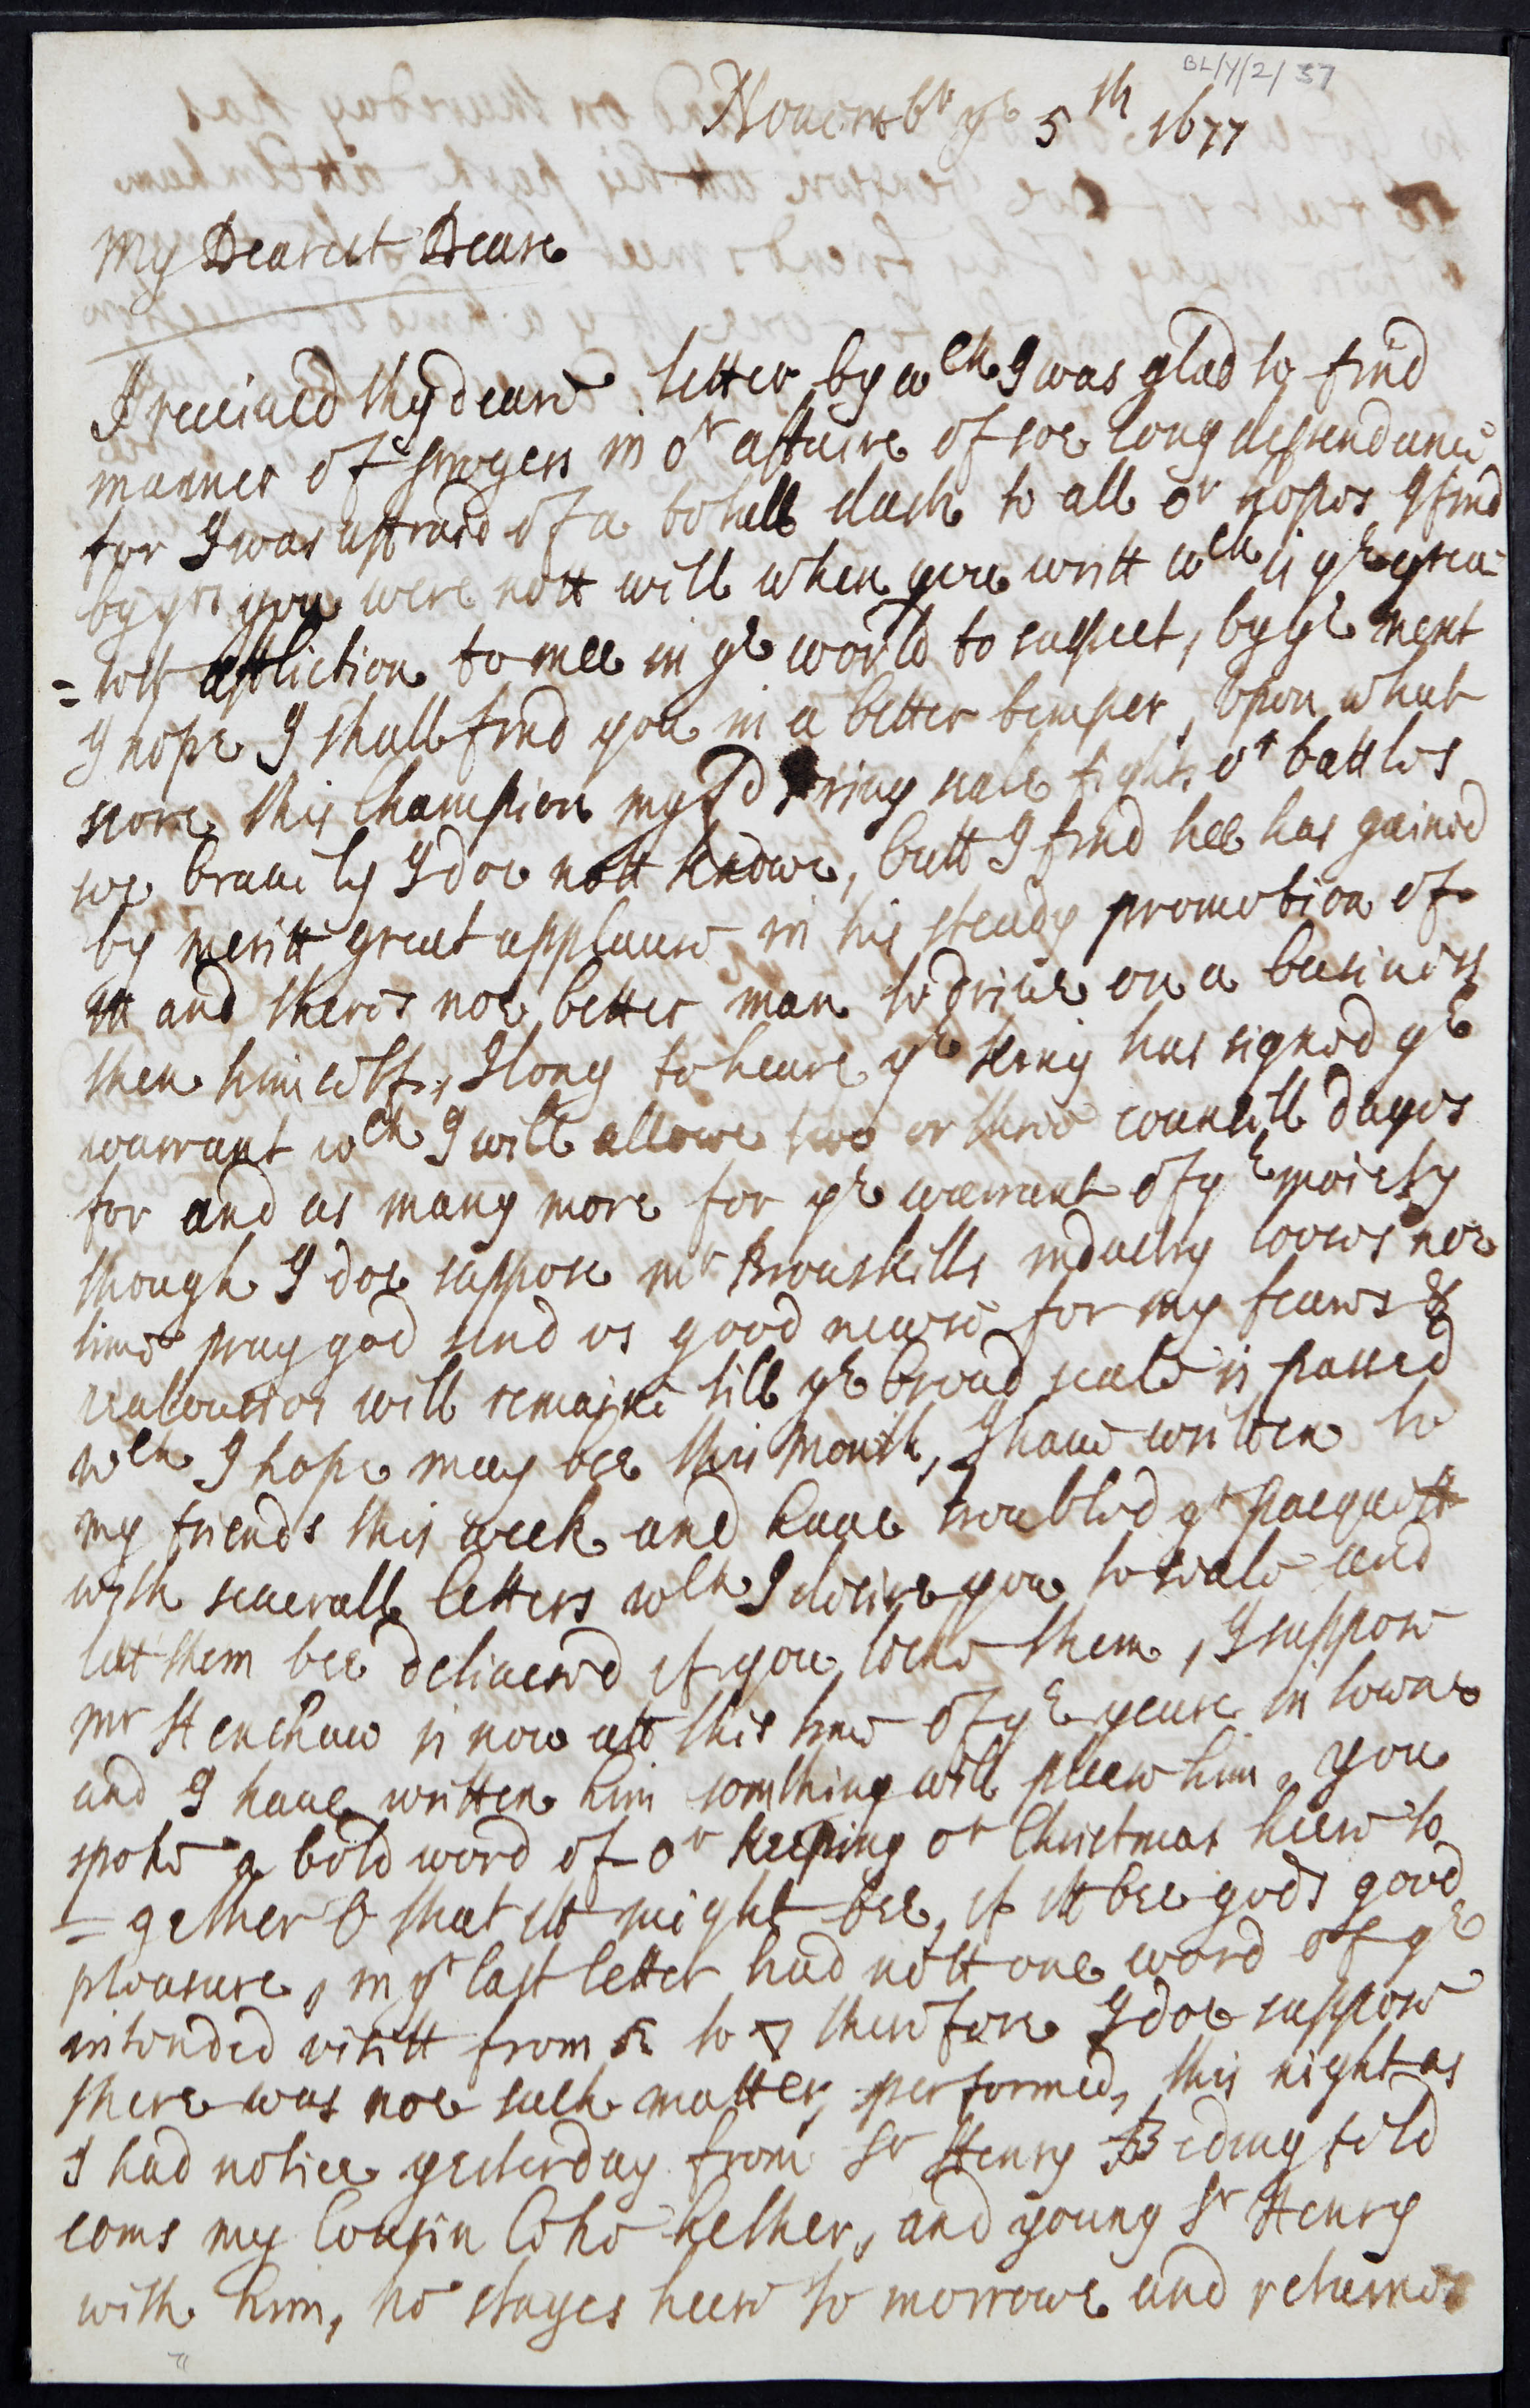 BL/Y/2/37
Nouembr ye 5th 1677
My Dearest Deare
I receiued thy deare letter by wch I was glad to find
manner of progess in or affaire of soe long dependance
for I was affraid of a totall dash to all or hopes I find
by yrs you were nott well when you writt wch is ye grea
=test affliction to mee in ye world to suspect, by ye next
I hope I shall find you in a better temper, Vpon what
score this Champion my Ld fights or battles
soe brauely I doe nott knowe, butt I find hee has gained
by meritt great applause in his steady promotion of
itt and theres noe better man to driue on a business
then himselfe, I long to heare ye King has signed ye
warrant wch I will allowe two or three councill dayes
for and as many more for ye warrant of ye moiety
though I doe suppose mr Brouskills industry looses noe
time pray god send vs good newse for my feares &
iealousies will remaine till ye broad seale is passed
wch I hope may bee this month, I haue written to
my friends this week and haue troubled yr pacquett
with seuerall letters wch I desire you to seale and
lett them bee deliuered if you like them, I suppose
mr Henshaw is now att this time of ye yeare in towne
and I haue written him somthing will please him, you
spoke a bold word of or keeping or Christmas heere to
=gether O that itt might bee, if itt bee gods good
pleasure, in yr last letter had nott one word of ye
intended visitt from to therefore I doe suppose
there was noe such matter performed, this night as
I had notice yesterday from Sr Henry Bedingfild
coms my Cousin Coke hether, and young Sr Henry
with him, he stayes heere to morrowe and returnes